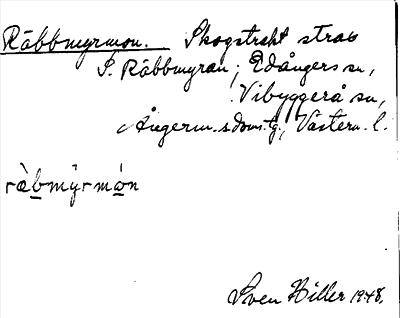 Räbbmyrmon. Skogstrakt strax
S. Räbbmyran, Edångers sn,
Vibyggerå sn,
Ångerm. s domsg., Västern. l.
ràbmỳrmón
Sven Hiller 1948.